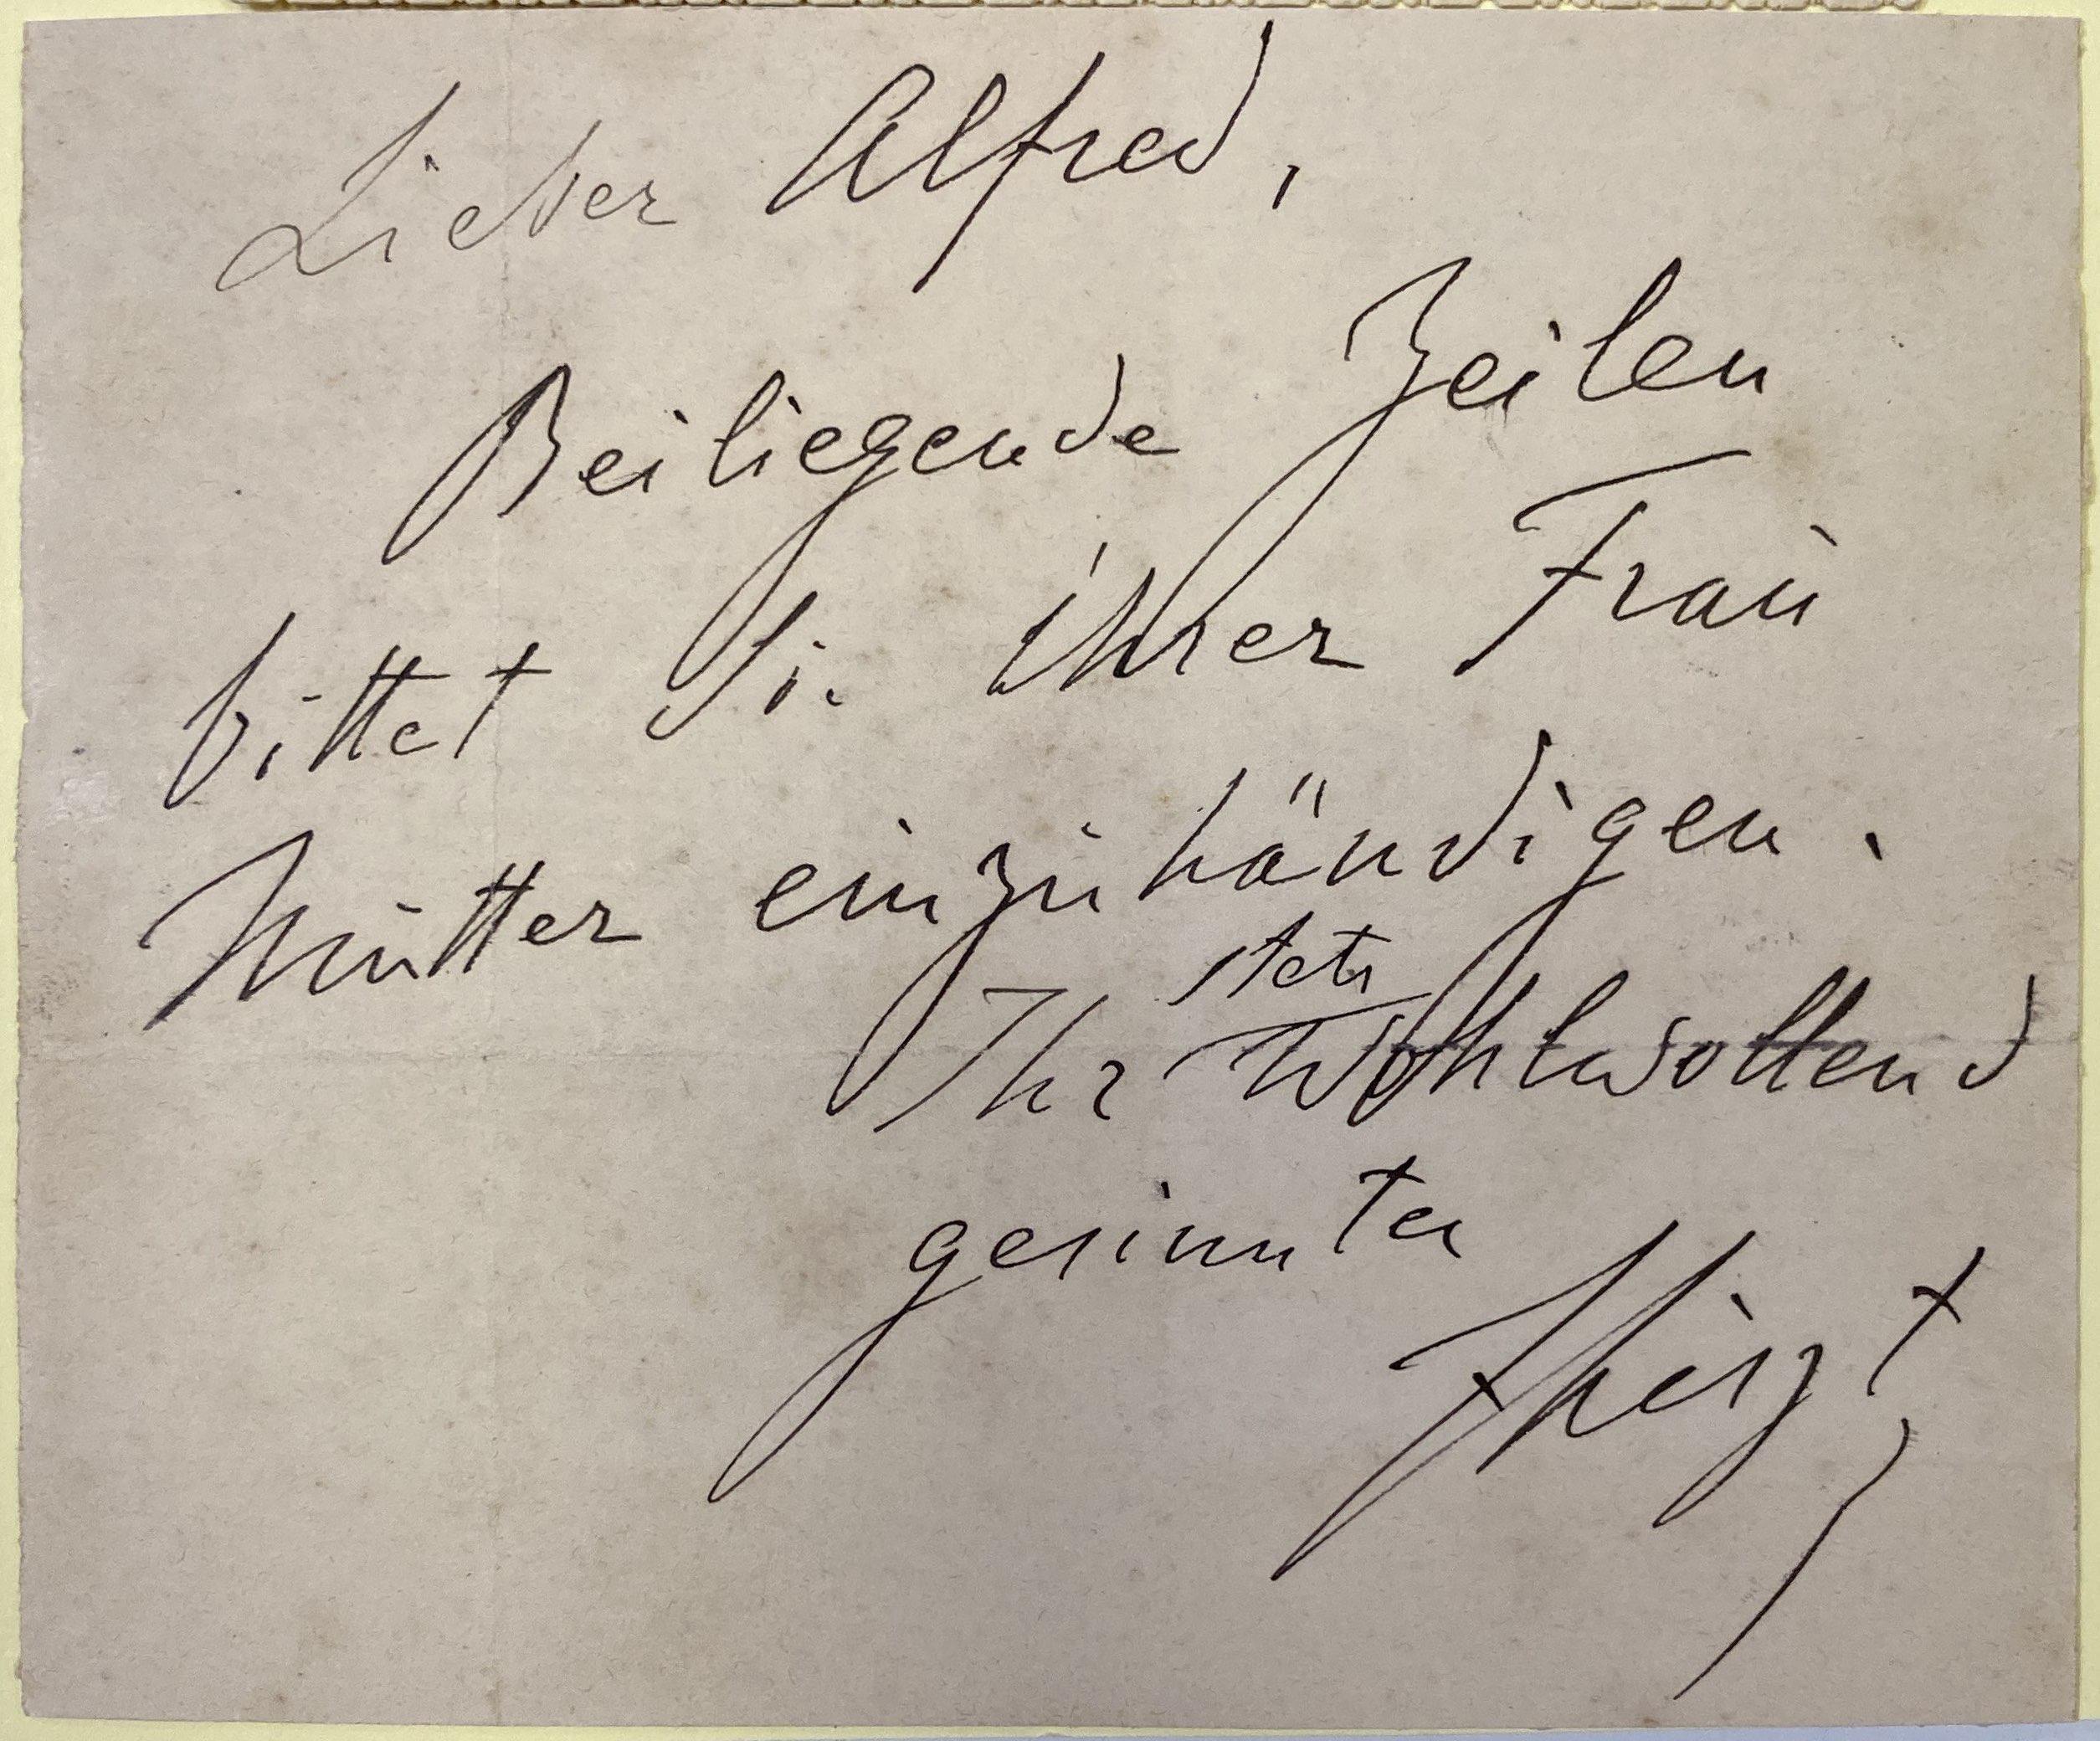 Lieber Alfred,
Beiliegende Zeilen
bittet Si. ihrer Frau
Mutter einzuhändigen.
stets
Ihr Wohlwollend
gesinnter
FLiszt